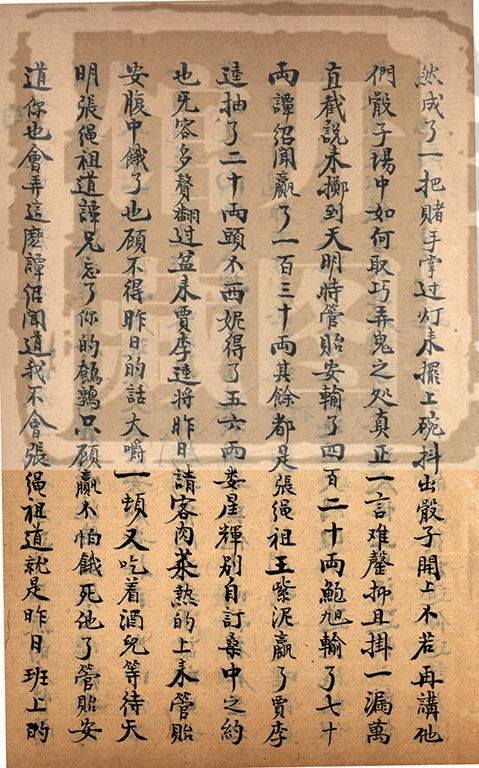 然成了一把赌手掌过灯来摆上碗抖出骰子開上不若再講他
們骰子場中如何取巧弄鬼之处真正一言难罄抑且掛一漏萬
直截說来擲到天明時管貽安輸了四百二十両鮑旭輸了七十
両譚紹聞贏了一百三十両其餘都是張绳祖王紫泥贏了賈李
逵抽了二十両頭不西妮得了五六両娄星輝别自訂桑中之約
也旡容多贅翻过盆来賈李逵将昨日請客肉菜熱的上来管貽
安腹中餓了也顧不得昨日的話大嚼一頓又吃着酒兒等待天
明張绳祖道譚兄忘了你的鵪鶉只顧贏不怕餓死他了管貽安
道你也會弄這麽譚绍闻道我不會張绳祖道就是昨日班上的